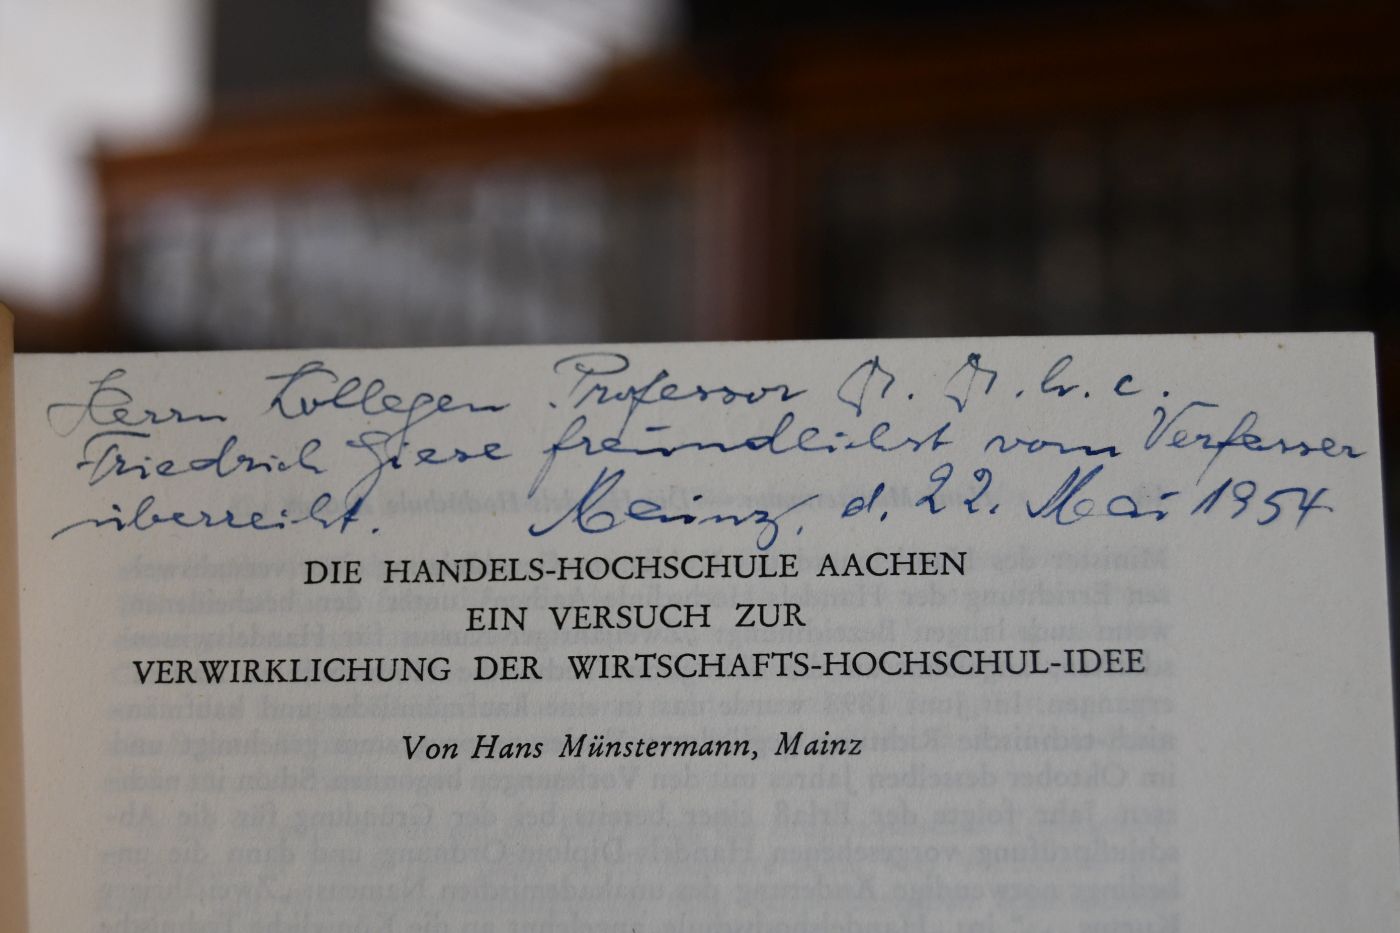 Herrn Kollegen Professor Dr. Dr. h. c.
Friedrich Giese freundlichst vom Verfasser
überreicht. Mainz, d. 22. Mai 1954
DIE HANDELS-HOCHSCHULE AACHEN
EIN VERSUCH ZUR
VERWIRKLICHUNG DER WIRTSCHAFTS-HOCHSCHUL-IDEE
Von Hans Münstermann, Mainz